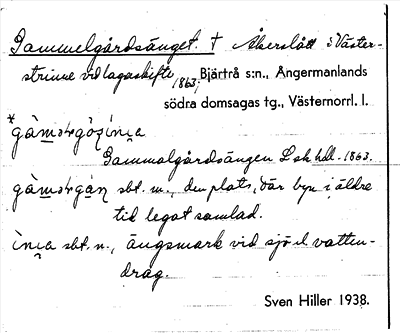 Gammelgårdsänget. † Åkerslått i Väster-
strinne vid lagaskifte 1863, Bjärtrå s:n., Ångermanlands
södra domsagas tg., Västernorrl. l.
Gammalgårdsängen Lsk hdl. 1863.
sbt. m., den plats, där byn i äldre
tid legat samlad.
sbt. n., ängsmark vid sjö el vatten-
drag.
Sven Hiller 1938.